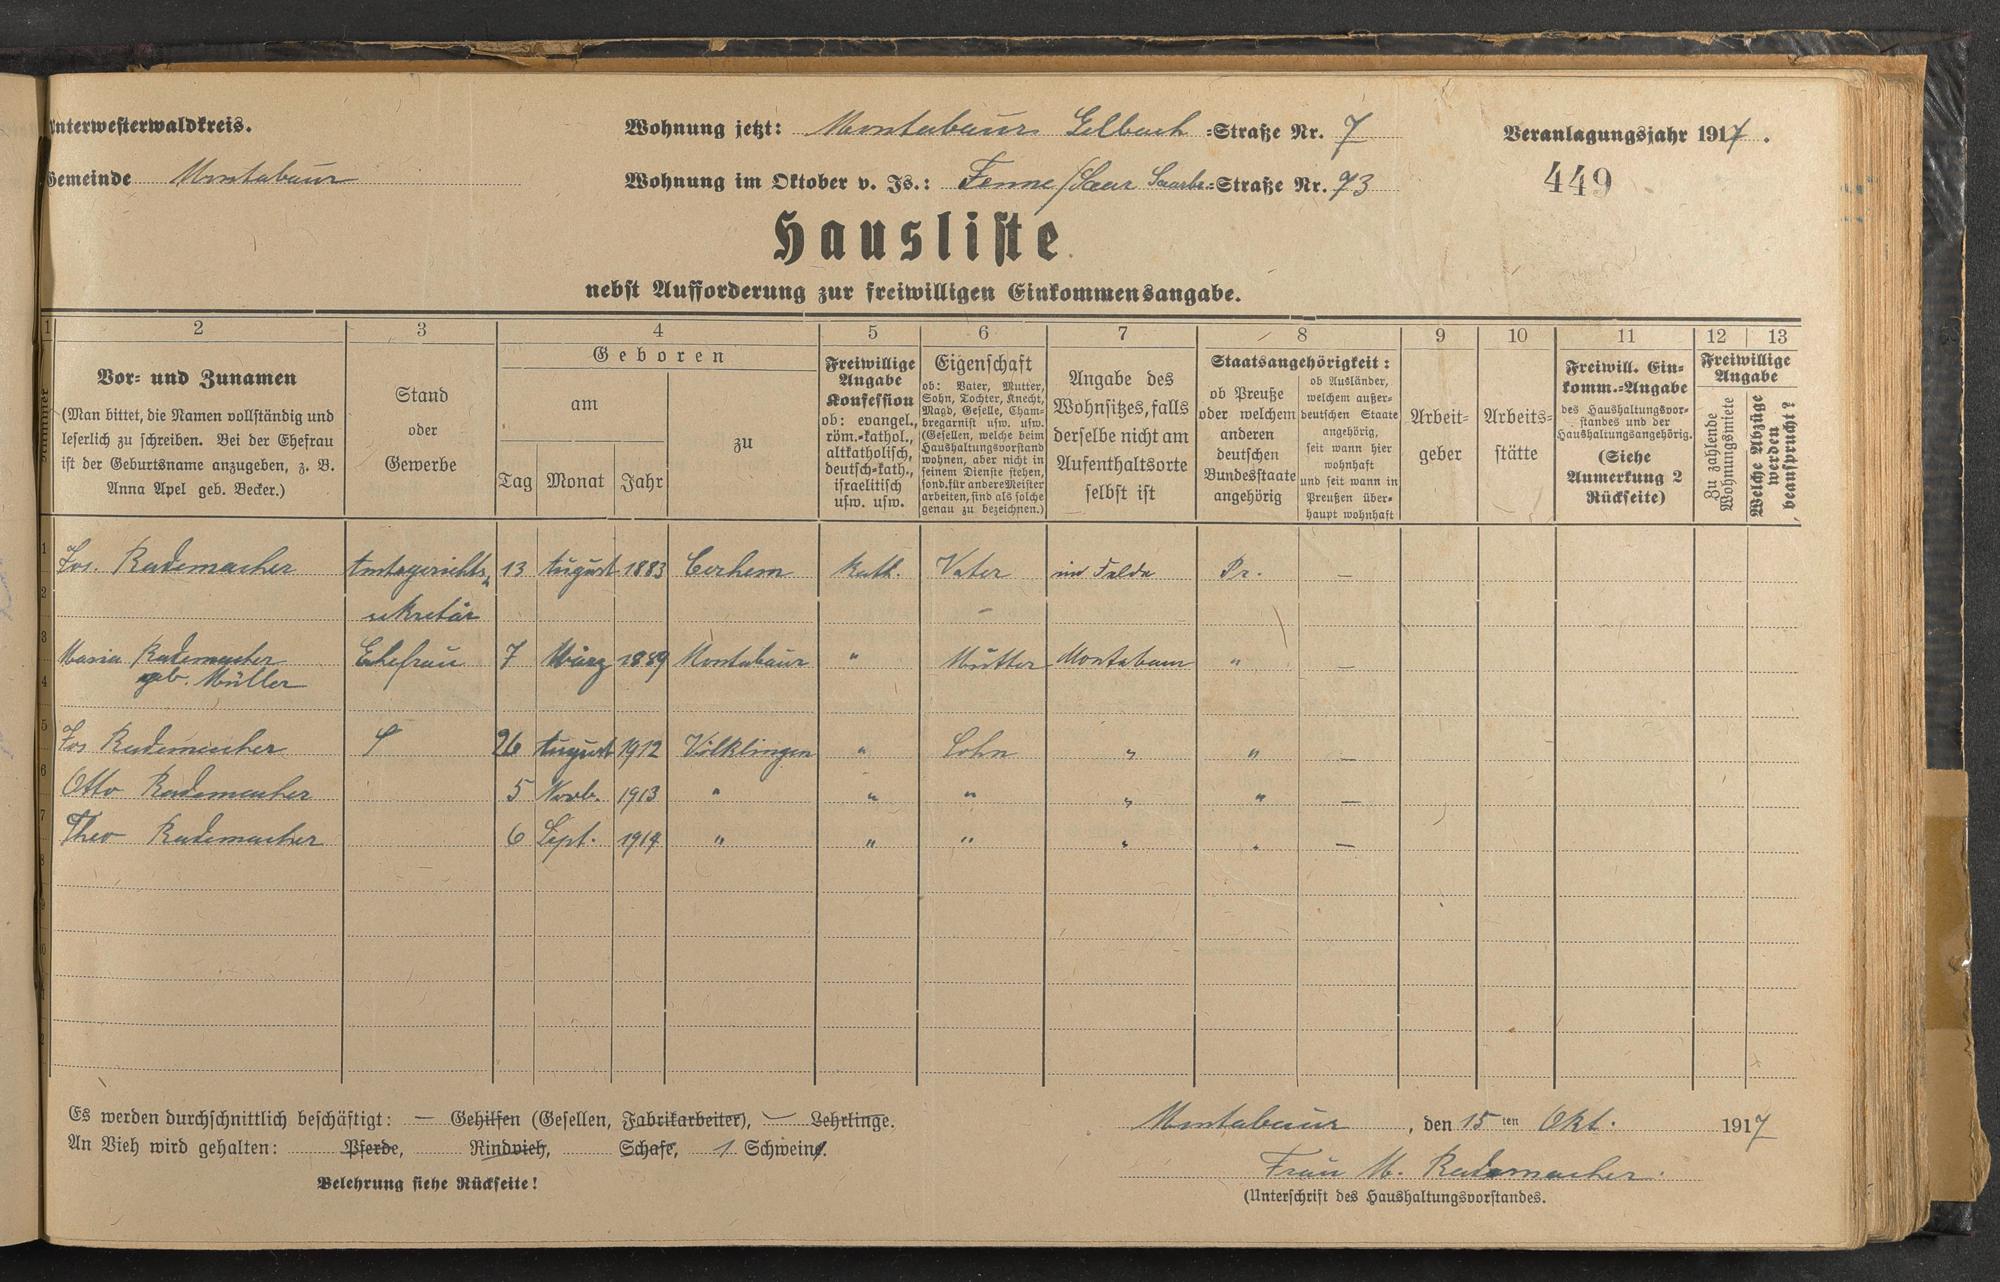 Unterwesterwaldkreis.
Gemeinde Montabaur
Wohnung jetzt: Montabaur Gelbach =Straße Nr. 7
Wohnung im Oktober v. Js.: Fenne/Saar Saarbr.=Straße Nr. 73
Veranlagungsjahr 1917.
449
Hausliste
nebst Aufforderung zur freiwilligen Einkommensangabe.
1 2 3 4 5 6 7 8 9 10 11 12 13
Nummer
Vor= und Zunamen
(Man bittet, die Namen vollständig und
leserlich zu schreiben. Bei der Ehefrau
ist der Geburtsname anzugeben, z. B.
Anna Apel geb. Becker.)
Stand
oder
Gewerbe
Geboren
am
Tag Monat Jahr
zu
Freiwillige
Angabe
Konfession
ob: evangel.,
röm.=kathol.,
altkatholisch,
deutsch=kath.,
israelitisch
usw. usw.
Eigenschaft
ob: Vater, Mutter,
Sohn, Tochter, Knecht,
Magd, Geselle, Cham=
bregarnist usw. usw.
(Gesellen, welche beim
Haushaltungsvorstand
wohnen, aber nicht in
seinem Dienste stehen,
sond. für andere Meister
arbeiten, sind als solche
genau zu bezeichnen.)
Angabe des
Wohnsitzes, falls
derselbe nicht am
Aufenthaltsorte
selbst ist
Staatsangehörigkeit:
ob Preuße
oder welchem
anderen
deutschen
Bundesstaate
angehörig
ob Ausländer,
welchem außer=
deutschen Staate
angehörig,
seit wann hier
wohnhaft
und seit wann in
Preußen über=
haupt wohnhaft
Arbeit=
geber
Arbeits=
stätte
Freiwill. Ein=
komm.=Angabe
des Haushaltungsvor=
standes und der
Haushaltungsangehörig.
(Siehe
Anmerkung 2
Rückseite)
Freiwillige
Angabe
Zu zahlende
Wohnungsmiete
Welche Abzüge
werden
beansprucht?
1 Jos. Rademacher Amtsgerichts= 13 August 1883 Berhem Kath. Vater im Felde Pr. —
2 sekretär –
3 Maria Rademacher Ehefrau 7 März 1889 Montabaur " Mutter Montabaur " —
4 geb. Müller
5 Jos Rademacher 26 August 1912 Völklingen " Sohn " " —
6 Otto Rademacher 5 Novb. 1913 " " " " " —
7 Theo Rademacher 6 Sept. 1914 " " " " " —
8
Es werden durchschnittlich beschäftigt: — Gehilfen (Gesellen, Fabrikarbeiter), — Lehrlinge.
An Vieh wird gehalten: Pferde, Rindvieh, Schafe, 1 Schweine.
Belehrung siehe Rückseite!
Montabaur, den 15 ten Okt. 1917
Frau M. Rademacher.
(Unterschrift des Haushaltungsvorstandes.